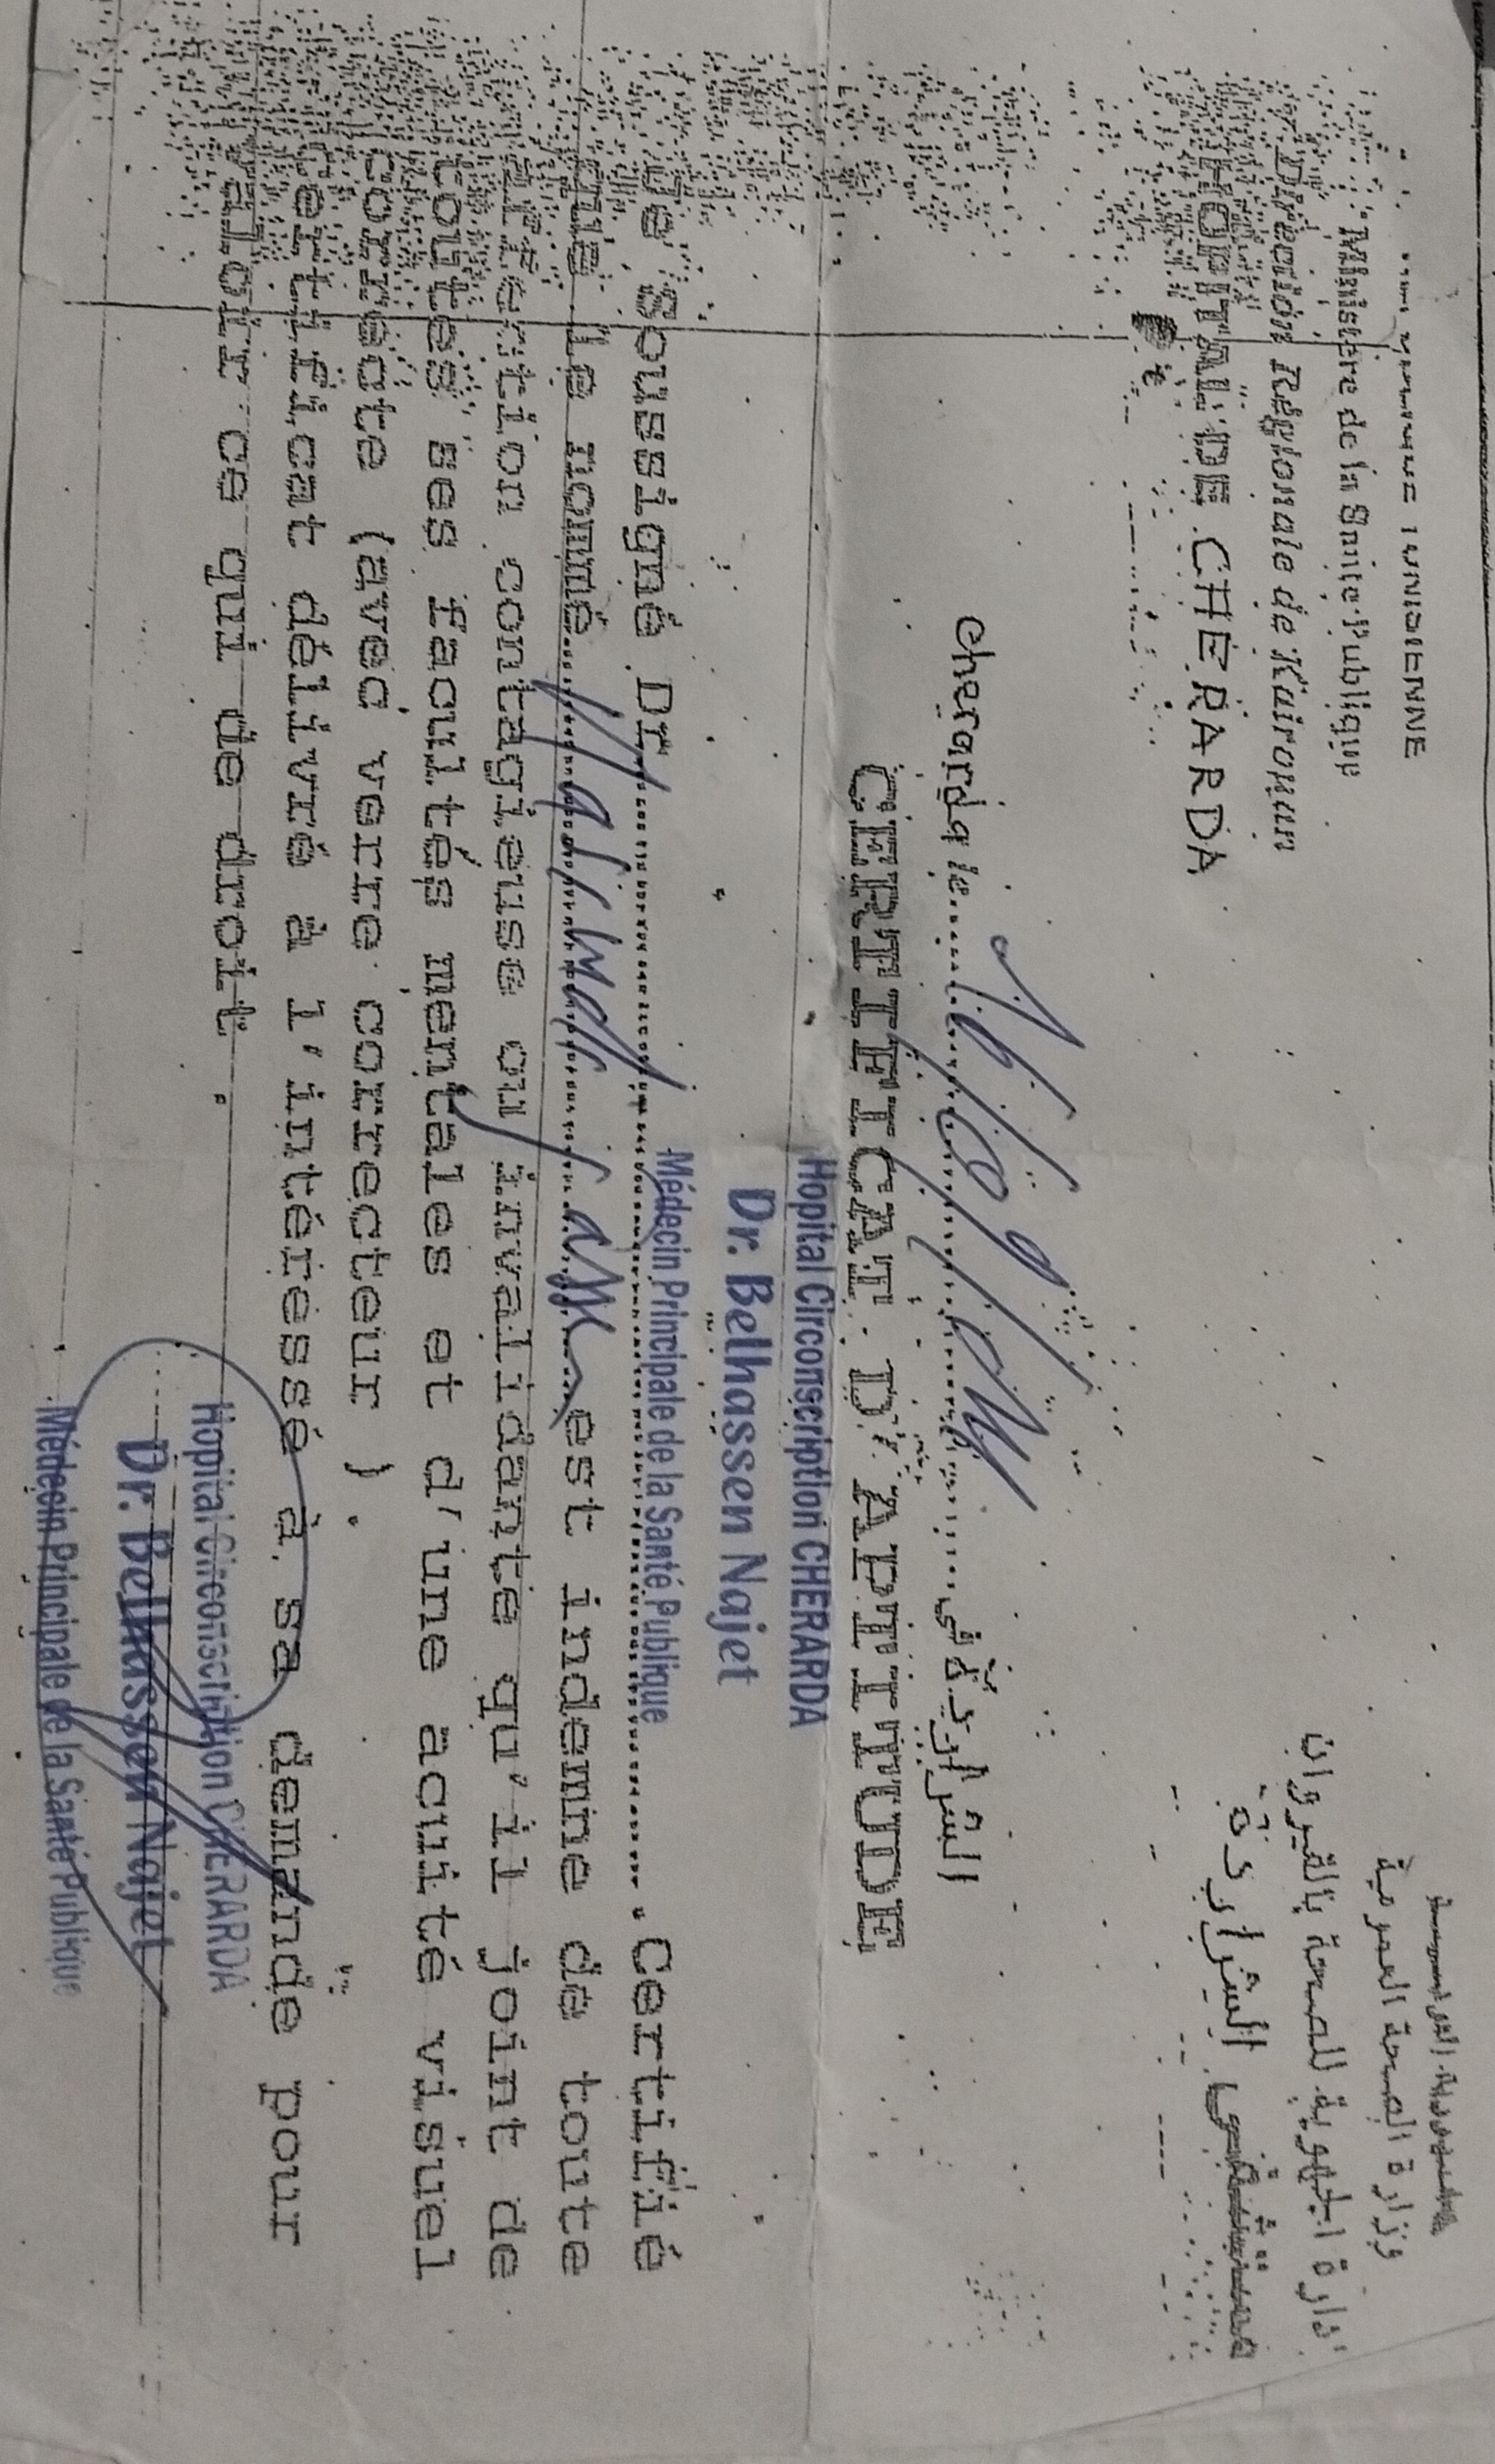 TUNISIENNE
Ministère de la Santé Publique
Direction Régionale de Kairouan
HOPITAL DE CHERARDA
وزارة الصحة العمومية
ادارة الجهوية للصحة بالقيروان
مستشفى الشراردة
cherarda le
الشراردة في
CERTIFICAT D'APTITUDE
Hopital Circonscription CHERARDA
Dr. Belhassen Najet
Médecin Principale de la Santé Publique
Je soussigné Dr. Certifié
que le nommé est indemne de toute
affection contagieuse ou invalidante qu'il joint de
toutes ses facultés mentales et d'une acuité visuel
correcte (avec verre correcteur ) .
Certificat délivré à l'intéressé à sa demande pour
valoir ce qui de droit .
Hopital Circonscription CHERARDA
Dr. Belhassen Najet
Médecin Principale de la Santé Publique